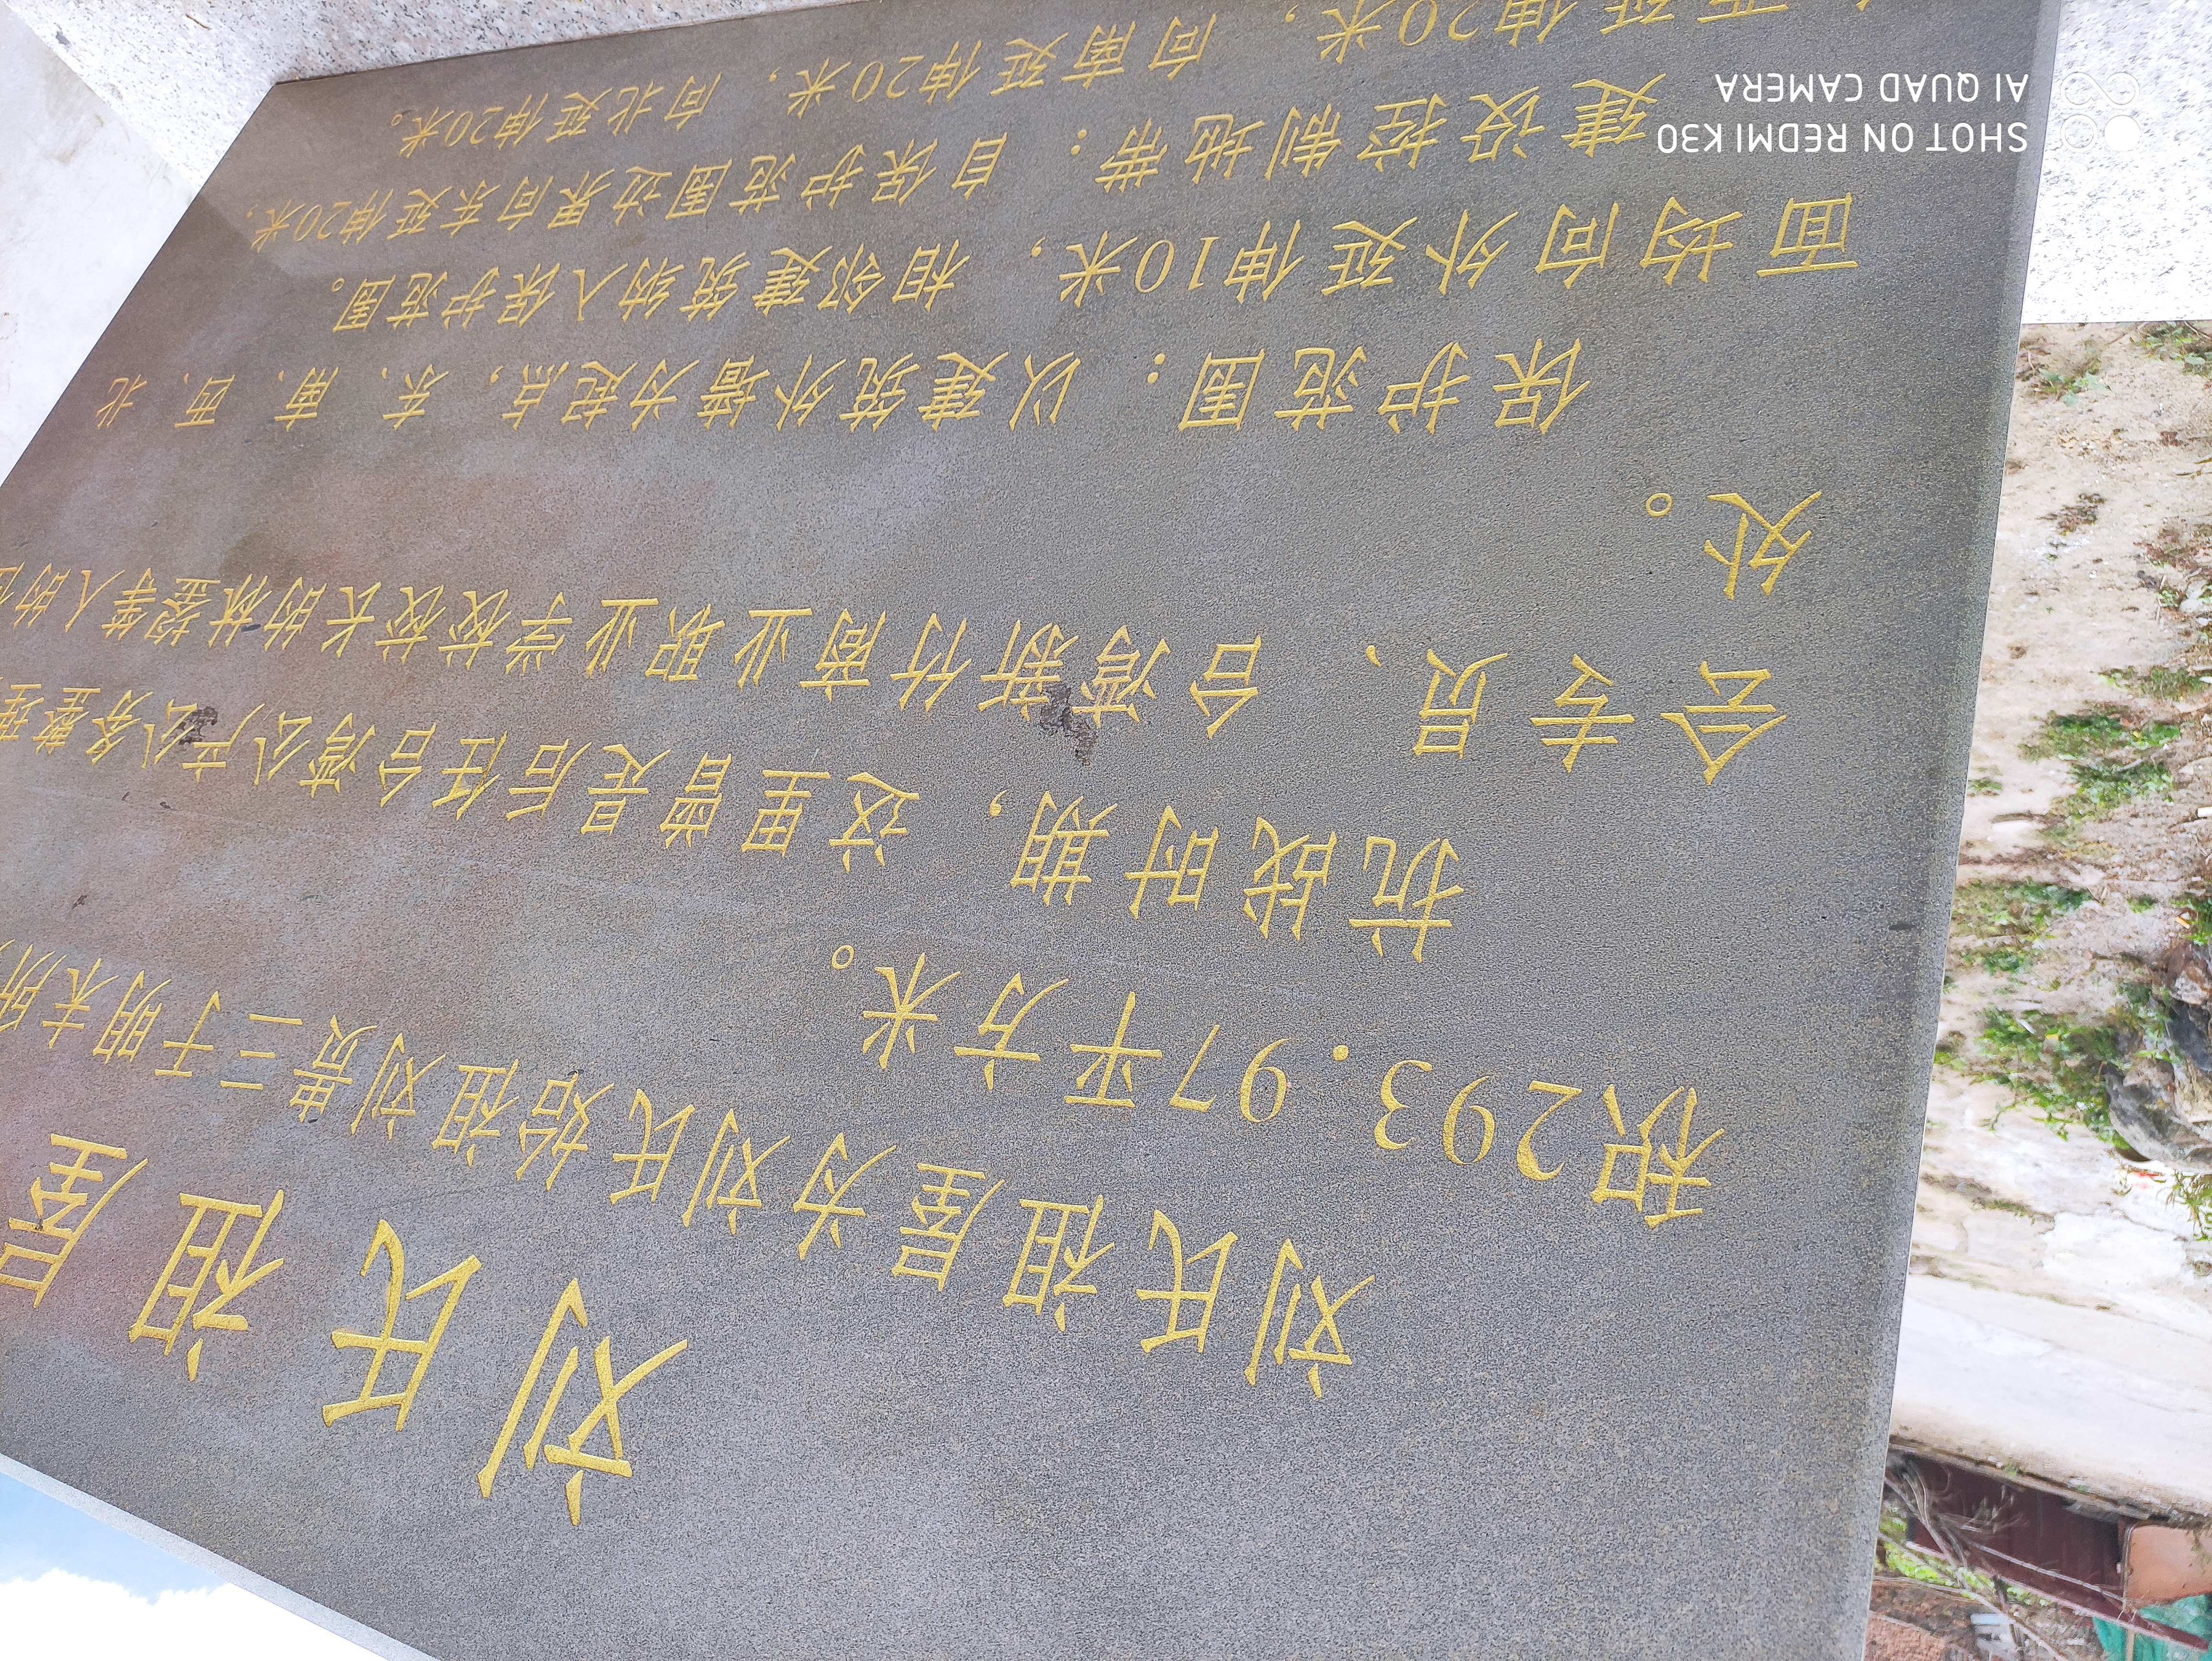 刘氏祖居
刘氏祖居为刘氏始祖刘贵三于明末所
积293.97平方米。
抗战时期,这里曾是后任台湾公产公务整理
会专员、台湾新竹商业职业学校校长的林
等人的
处。
保护范围:以建筑外墙为起点,东、南、西、北
面均向外延伸10米,相邻建筑纳入保护范围。
建设控制地带:自保护范围边界向东延伸20米,
西延伸20米,向南延伸20米,向北延伸20米。
SHOT ON REDMI K30
AI QUAD CAMERA